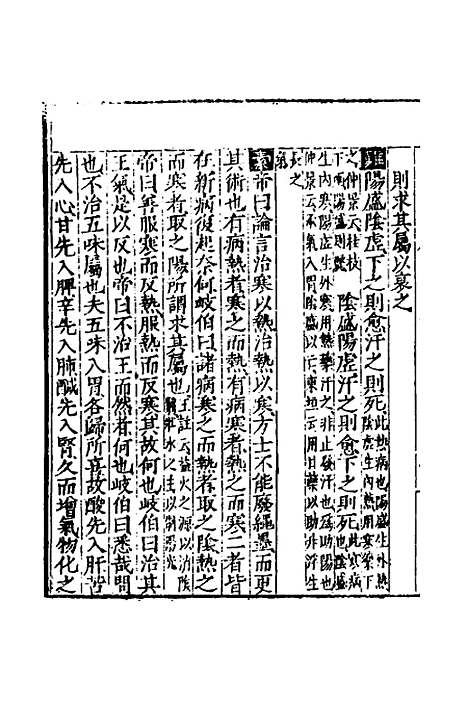 則求其屬以衰之
難陽盛陰虛下之則愈汗之則死此熱病也陽盛生外熱陰虛生內熱用寒藥下
之仲景云桂枝下咽陽盛則斃 陰盛陽虛汗之則愈下之則死此寒病也陰盛
生內寒陽虛生外寒用熱藥汗之非止發汗也為助陽也
仲景云承氣入胃陰盛以亡東垣云用甘藥以助升浮生
長之氣
素帝曰論言治寒以熱治熱以寒方士不能廢繩墨而更
其術也有病熱者寒之而熱有病寒者熱之而寒二者皆
在新病復起奈何岐伯曰諸病寒之而熱者取之陰熱之
而寒者取之陽所謂求其屬也王註云益火之源以消陰翳壯水之主以制陽光
帝曰善服寒而反熱服熱而反寒其故何也岐伯曰治其
王氣是以反也帝曰不治王而然者何也岐伯曰悉哉問
也不治五味屬也夫五味入胃各歸所喜故酸先入肝苦
先入心甘先入脾辛先入肺鹹先入腎久而增氣物化之